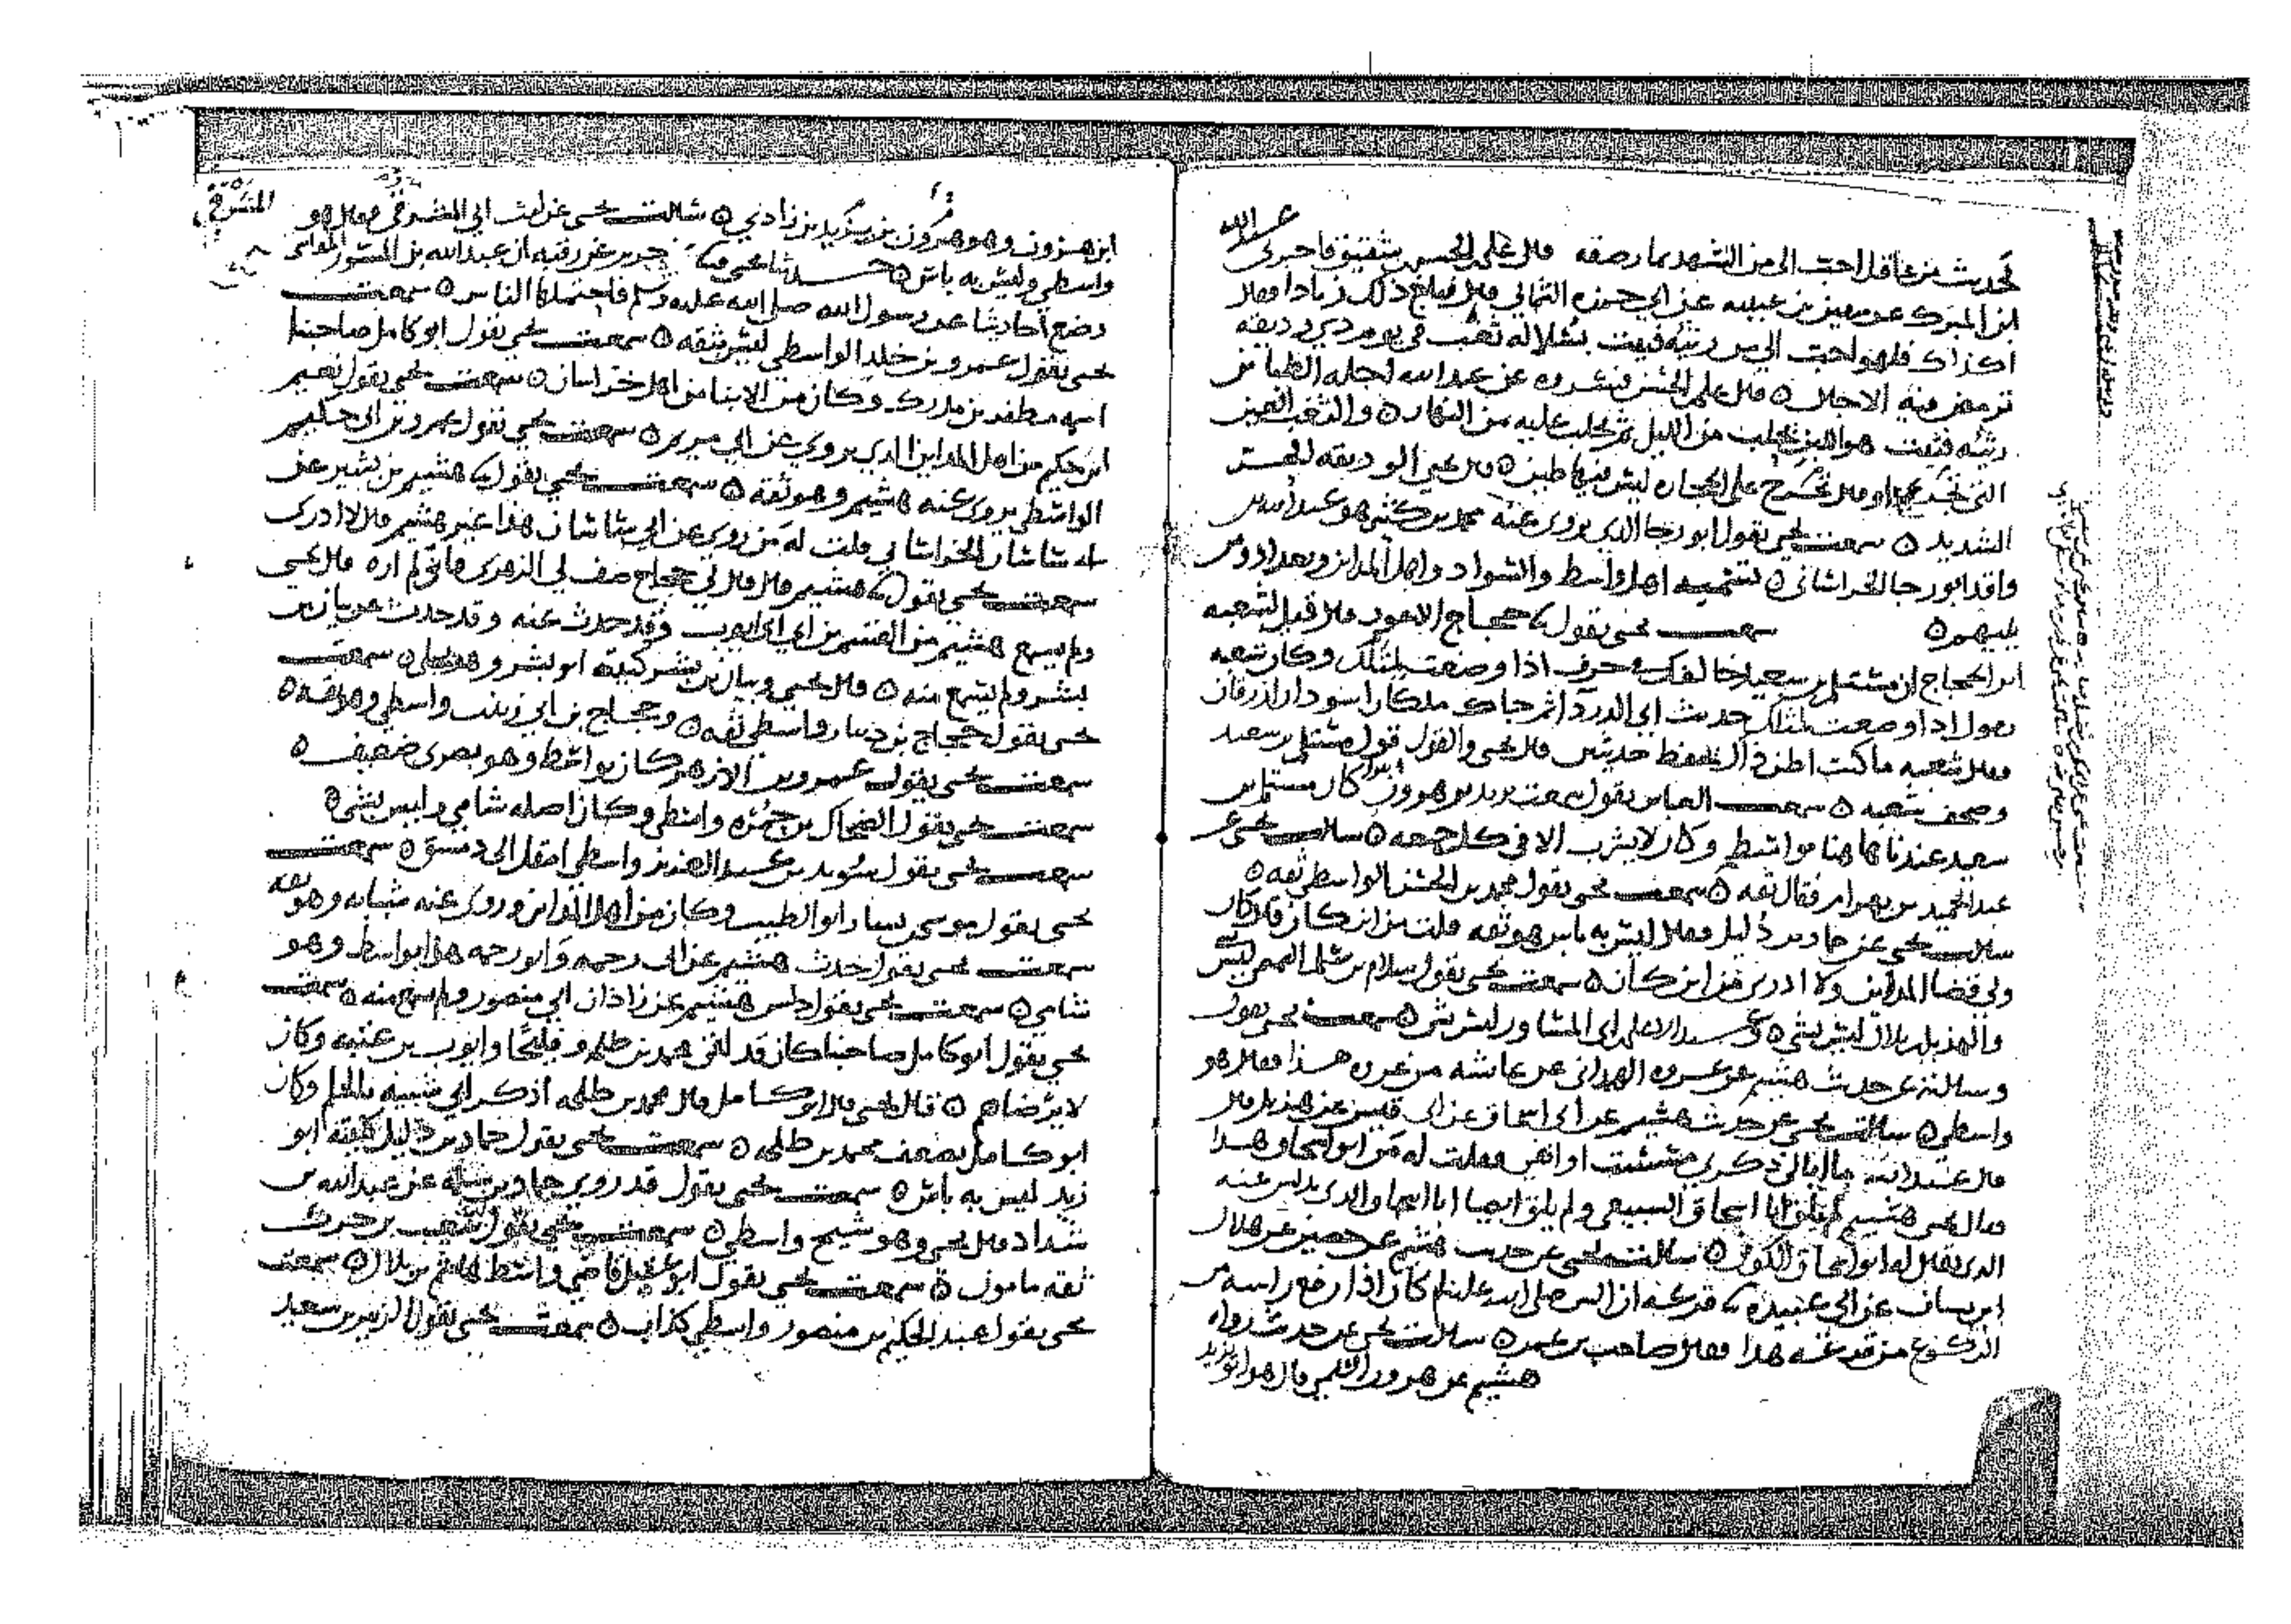 لحديث من عاقل احب الي من الشهد بما رصفة قال علي بن الحسن بن شقيق فاخبرني عبد الله
ابن المبرك عن معين بن عبيد الله عن ابي حمزه الثمالي قال فبلغ ذلك زيادا فقال
اكذاك فلهو احب الي من رثيه فثيت بسلاله ثغب في يوم ذي وديقه
ترمض فيه الاجال ٥ قال علي بن الحسن فسره عن عبد الله
رثيه فثيت هو اللبن يحلب من الليل ثم يحلب عليه من النهار ٥ والثغب العين
التي تجري على الحجاره ليس فيها طين ٥ قال يحيى الوديقه الحر
الشديد ٥ سمعت يحيى يقول ابو رجا الذي يروي عنه محمد بن كثير هو عبد الله بن
واقد ابو رجا الخراساني ٥ تسميه اهل واسط والسواد واهل المداين وبغداد ومن
يليهم ٥ سمعت يحيى يقول حجاج الاعور قال قيل لشعبه
ابن الحجاج ان مستلم بن سعيد خالفك في حرف اذا وضعت بشلك وكان شعبه
يقول اذا وضعت حديث ابي الدرداء
فقال شعبه ما كنت اظن ذاك يحفظ حديثين قال يحيى والقول قول مستلم بن سعيد
وصحف شعبه ٥ سمعت العباس يقول سمعت يزيد بن هرون يقول كان مستلم بن
سعيد عندنا هاهنا بواسط وكان لا يشرب الا في كل جمعه ٥ سالت يحيى عن
عبد الحميد بن بهرام فقال ثقه ٥ سمعت يحيى يقول محمد بن الحسن الواسطي ثقه ٥
سالت يحيى عن حماد بن دليل فقال ليس به باس هو ثقه قلت من اين كان قال كان
ولي قضا المداين ولا ادري من اين كان ٥ سمعت يحيى يقول سلام بن سلم التميمي ليس
والهذيل بن بلال ليس بشي ٥ وعبد الاعلى بن ابي المساور ليس بشي ٥ سمعت يحيى يقول
وسالته عن حديث هشيم عن عروه الهمداني عن عايشه من عروه هذا فقال هو
واسطي ٥ سالت يحيى عن حديث هشيم عن ابي اسحاق عن ابي قيس عن هذيل قال
قال عبد الله ما ابالي ذكري مسست او انفي فقلت له من ابو اسحاق هذا
فقال يحيى هشيم لم يلق ابا اسحاق السبيعي ولم يلق ايضا ابا اسحاق الذي يدلس عنه
الذي يقال له ابو اسحاق الكوفي ٥ سالت يحيى عن حديث هشيم عن حصين عن هلال
ابن يساف عن ابي عبيده قزعه ان النبي صلى الله عليه وسلم كان اذا رفع راسه من
الركوع من قزعه هذا فقال صاحب بن عمر ٥ سالت يحيى عن حديث رواه
هشيم عن هرون السلمي قال هو ابو يزيد
ابن هرون وهو هرون بن يزيد بن زادي ٥ سالت يحيى عن ليث ابي المشرفي فقال هو
واسطي وليس به باس ٥ حدثنا يحيى جرير عن رقبه ان عبد الله بن المسور المدايني
وضع احاديثا عن رسول الله صلى الله عليه وسلم فاحتملها الناس ٥ سمعت
يحيى يقول عمرو بن خلد الواسطي ليس بثقه ٥ سمعت يحيى يقول ابو كامل صاحبنا
اسمه مظفر بن مدرك وكان من الابنا من اهل خراسان ٥ سمعت يحيى يقول نعيم
ابن حكيم من اهل المداين الذي يروي عن ابي مريم ٥ سمعت يحيى يقول عمرو بن ابي حكيم
الواسطي يروي عنه هشيم وهو ثقه ٥ سمعت يحيى يقول هشيم بن بشير عن
ابي ساسان الخراساني قلت له من روى عن ابي ساسان هذا غير هشيم قال لا ادري
سمعت يحيى يقول هشيم قال قال لي حجاج صف لي الزهري فاني لم اره قال يحيى
ولم يسمع هشيم من القسم بن ابي ايوب وقد حدث عنه وقد حدث عن بيان بن
بشر ولم يسمع منه ٥ قال يحيى وبيان بن بشر كنيته ابو بشر وهو ٥ سمعت
يحيى يقول حجاج بن دينار واسطي ثقه ٥ وحجاج بن ابي زينب واسطي وهو ثقه ٥
سمعت يحيى يقول عمرو بن الازهر كان بواسط وهو بصري ضعيف ٥
سمعت يحيى يقول الضحاك بن حمره واسطي وكان اصله شامي وليس بشي ٥
سمعت يحيى يقول سويد بن عبد العزيز واسطي انتقل الى دمشق ٥ سمعت
يحيى يقول موسى بن يسار ابو الطيب وكان من اهل المداين وروى عنه شبابه وهو ثقه
سمعت يحيى يقول حدث هشيم عن ابي رحمه وابو رحمه هذا بواسط وهو
شامي ٥ سمعت يحيى يقول دلس هشيم عن زاذان ابي منصور ولم يسمع منه ٥ سمعت
يحيى يقول ابو كامل صاحبنا كان قد لقي محمد بن طلحه وفليحا وايوب بن عتبه وكان
لا يرضاهم ٥ قال يحيى قال ابو كامل قال محمد بن طلحه اذكر ابي شبيه بالحلم وكان
ابو كامل يضعف محمد بن طلحه ٥ سمعت يحيى يقول حماد بن دليل كنيته ابو
زيد ليس به باس ٥ سمعت يحيى يقول قد روى حماد بن سلمه عن عبد الله بن
شداد قال يحيى وهو شيخ واسطي ٥ سمعت يحيى يقول شعيب بن حرب
ثقه مامون ٥ سمعت يحيى يقول ابو عقيل قاضي واسط هاشم بن بلال ٥ سمعت
يحيى يقول عبد الحكيم بن منصور واسطي كذاب ٥ سمعت يحيى يقول الزبير بن سعيد